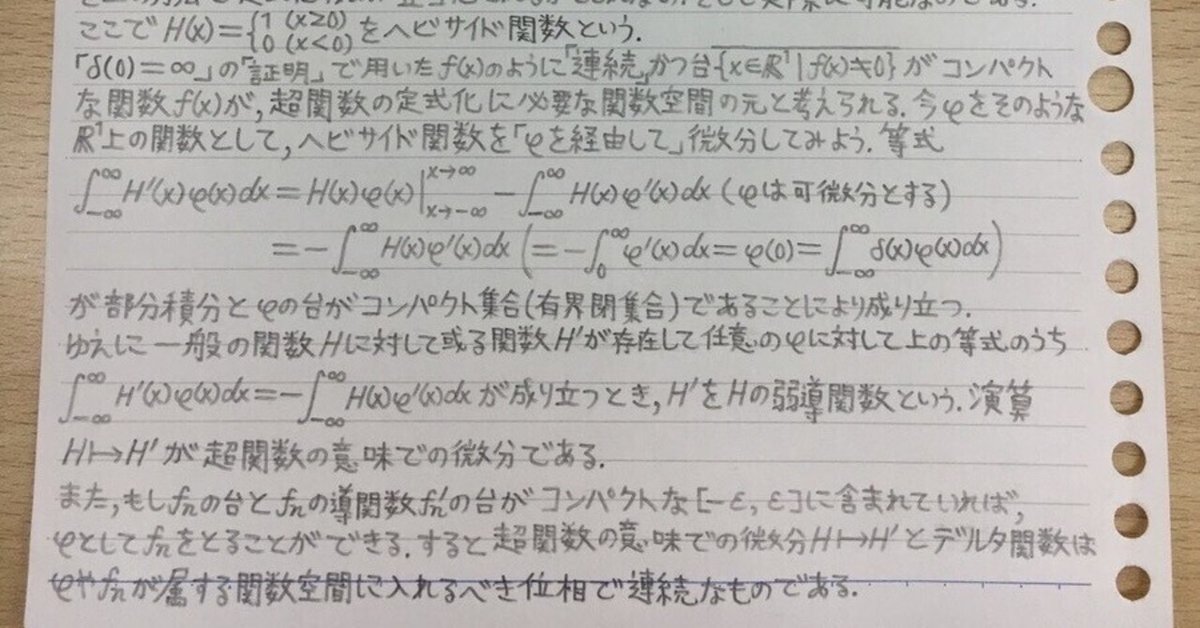 ここでH(x)={1 (x≥0) 0 (x<0)をヘビサイド関数という.
「δ(0)=∞」の「証明」で用いたf(x)のように「連続」かつ台{x∈ℝ¹|f(x)≠0}がコンパクト
な関数f(x)が,超関数の定式化に必要な関数空間の元と考えられる.今φをそのような
ℝ¹上の関数として,ヘビサイド関数を「φを経由して」微分してみよう.等式
∫_{-∞}^{∞}H'(x)φ(x)dx=H(x)φ(x)|_{x→-∞}^{x→∞}-∫_{-∞}^{∞}H(x)φ'(x)dx(φは可微分とする)
=-∫_{-∞}^{∞}H(x)φ'(x)dx(=-∫_{0}^{∞}φ'(x)dx=φ(0)=∫_{-∞}^{∞}δ(x)φ(x)dx)
が部分積分とφの台がコンパクト集合(有界閉集合)であることにより成り立つ.
ゆえに一般の関数Hに対して或る関数H'が存在して任意のφに対して上の等式のうち
∫_{-∞}^{∞}H'(x)φ(x)dx=-∫_{-∞}^{∞}H(x)φ'(x)dxが成り立つとき,H'をHの弱導関数という.演算
H↦H'が超関数の意味での微分である.
また,もしfₙの台とfₙの導関数fₙ'の台がコンパクトな[-ε,ε]に含まれていれば,
φとしてfₙをとることができる.すると超関数の意味での微分H↦H'とデルタ関数は
φやfₙが属する関数空間に入れるべき位相で連続なものである.